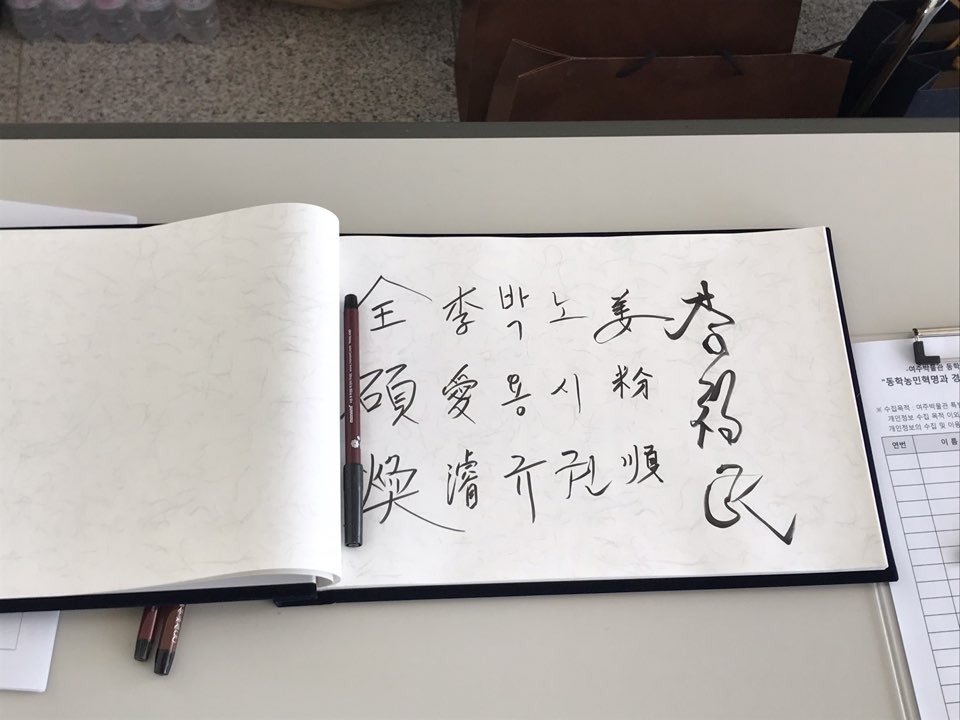 李福民
姜粉順
노시권
박용규
李愛濬
全碩煥
-여주박물관 동학
"동학농민혁명과 경
※ 수집목적 : 여주박물관 특별
개인정보 수집 목적 이외
개인정보의 수집 및 이용
연번 이 름